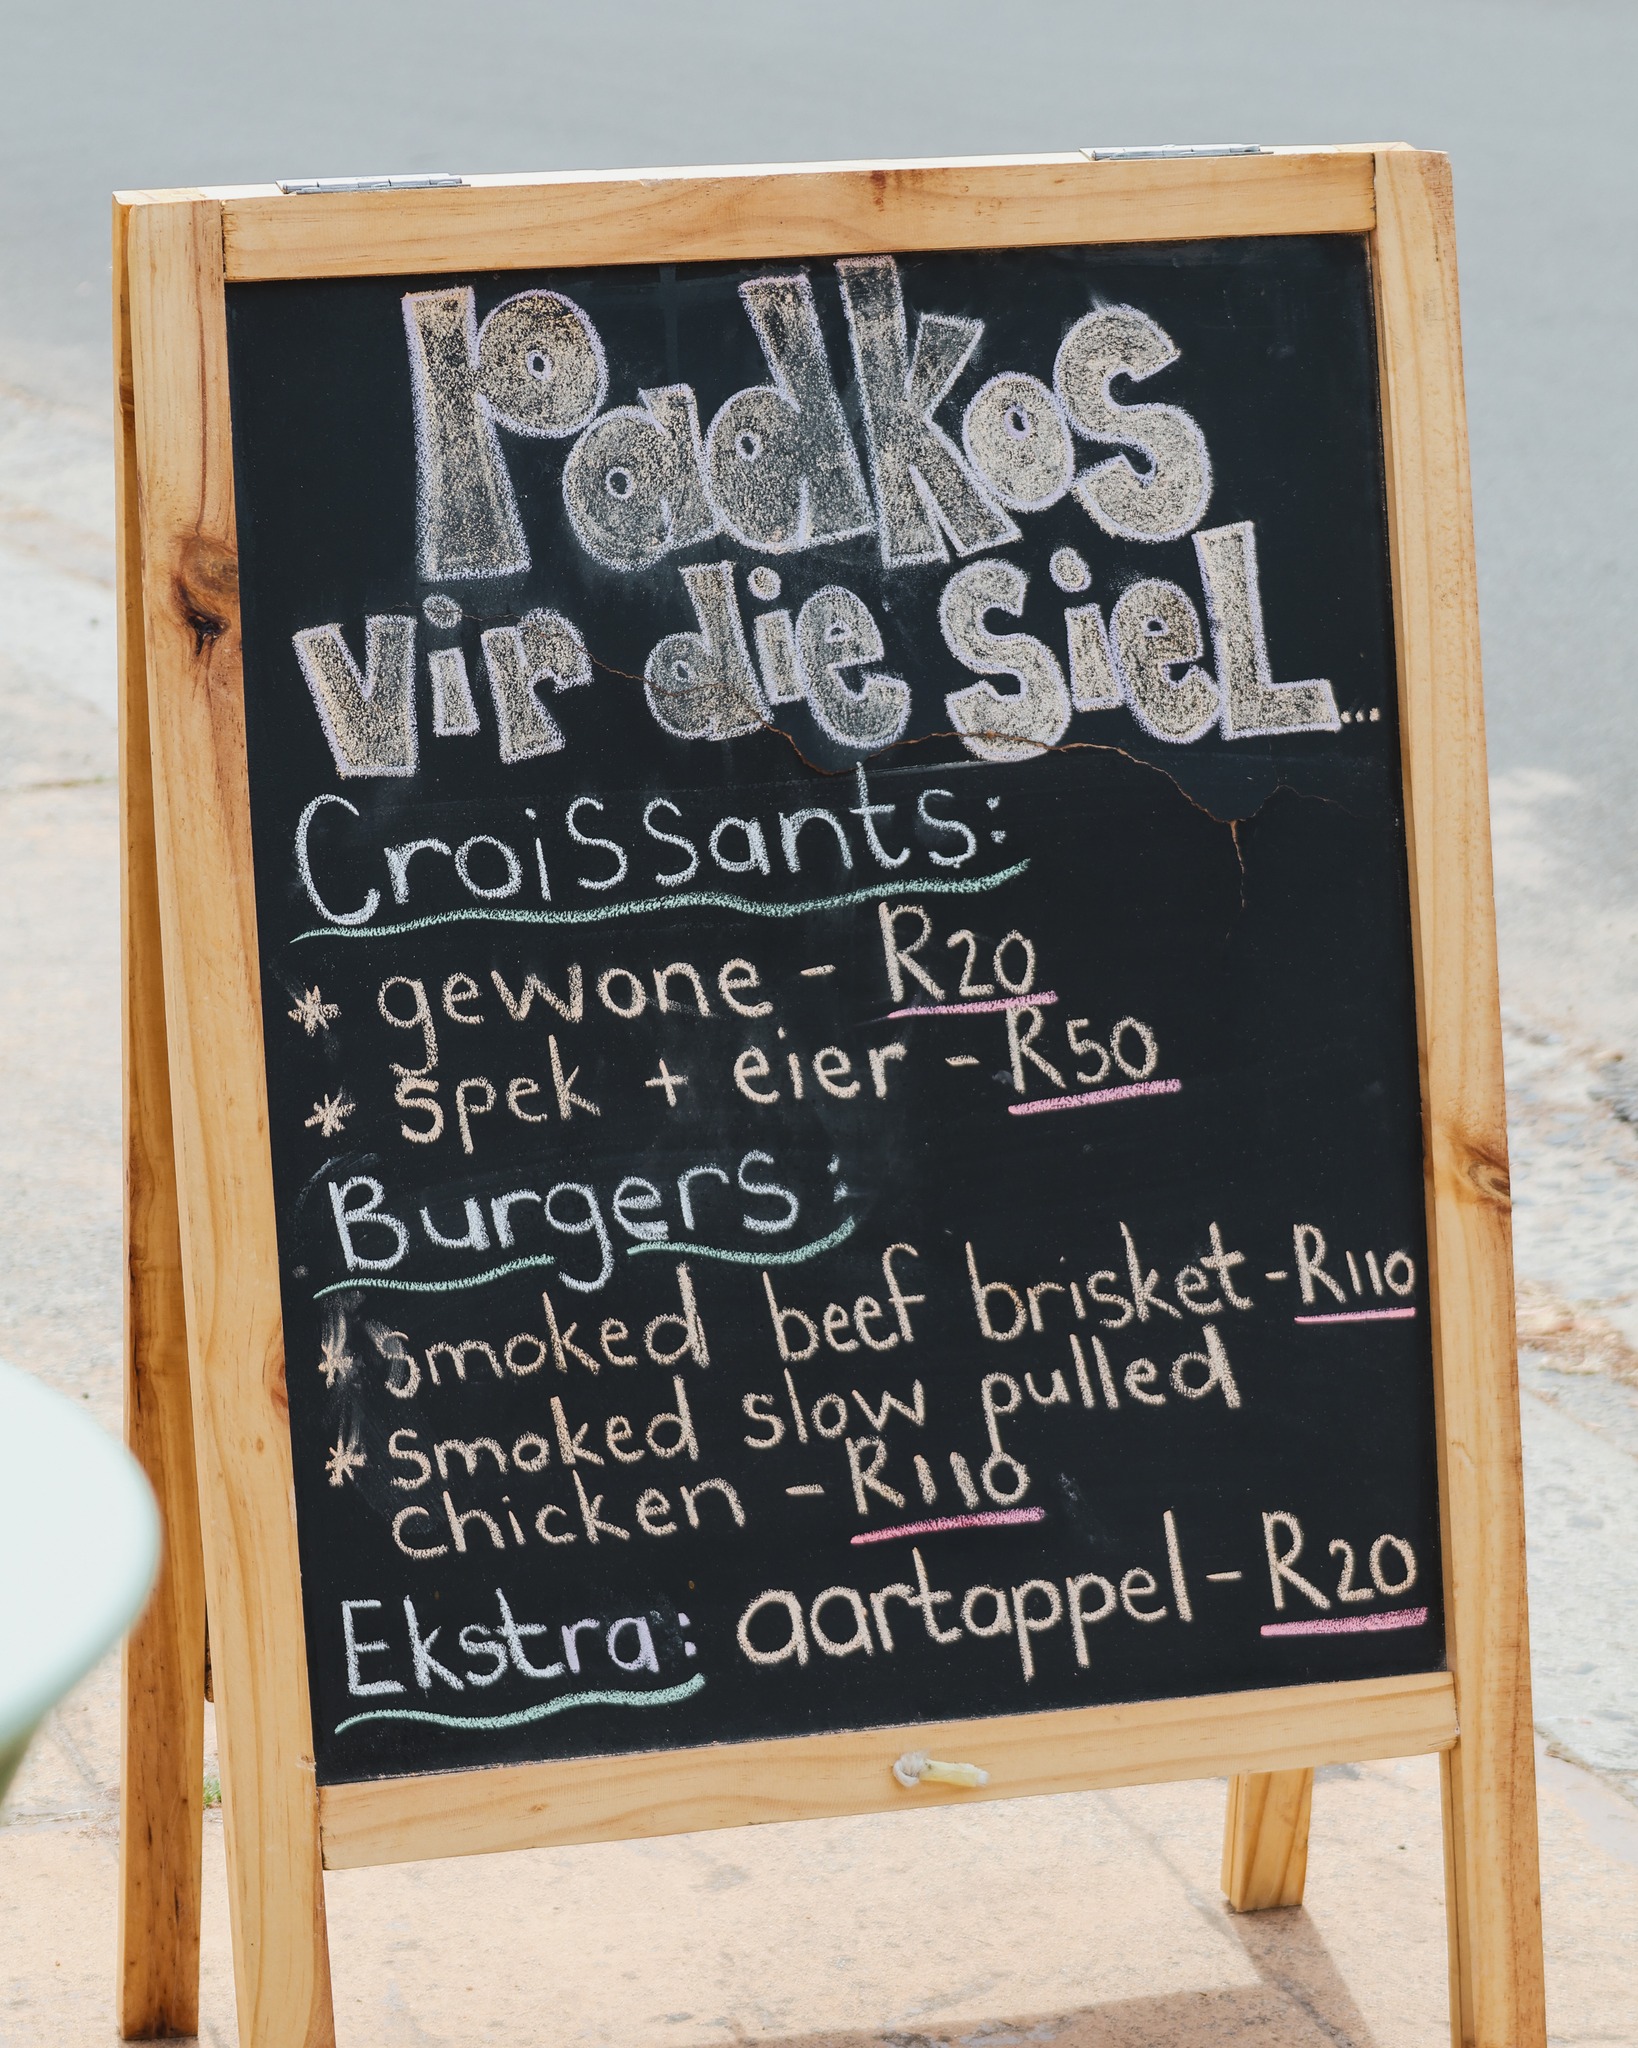 Padkos
vir die siel...
Croissants:
* gewone - R20
* spek + eier - R50
Burgers:
* smoked beef brisket - R110
* smoked slow pulled
chicken - R110
Ekstra: aartappel - R20